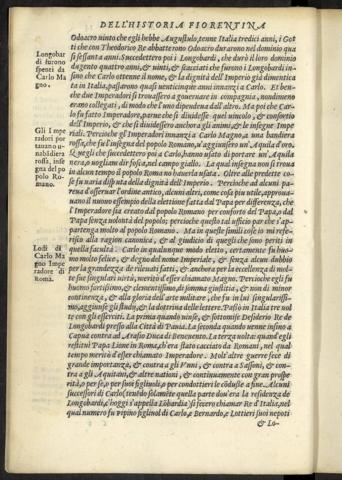 DELL'HISTORIA FIORENTINA
Odoacro uinto che egli hebbe Augustulo, tenne Italia tredici anni, i Got
ti che con Theodorico Re abbatterono Odoacro durarono nel dominio qua
si sessanta anni. Succedettero poi i Longobardi, che durò il loro dominio
dugento quattro anni, & uinti, & scacciati che furono i Longobardi in-
sino che Carlo ottenne il nome, & la dignità dell'Imperio già dimentica
ta in Italia, passarono quasi uenticinque anni innanzi a Carlo. Et ben-
che due Imperadori si trouassero a gouernare in compagnia, nondimeno
erano collegati, di modo che l'uno dipendeua dall'altro. Ma poi che Car-
lo fu fatto Imperadore, parue che si diuidesse quel uincolo, & consorto
dell'Imperio, & che si diuidessero anchora gli animi, & le insegne Impe
riali. Percioche gl'Imperadori innanzi a Carlo Magno, a una bandiera
rossa, che fu l'insegna del popolo Romano, u'aggiunsero un'Aquila d'oro.
Et quegli che succedettero poi a Carlo, hanno usato di portare un'Aquila
nera, o uogliam dir fosca, nel campo giallo. La qual insegna non si troua
in alcun tempo il popolo Romano hauerla usata. Oltre alle predette co-
se fu uaria disputa della dignità dell'Imperio. Percioche ad alcuni pa-
reua d'osseruar l'ordine antico, alcuni altri, come cosa più utile, approua-
uano il nuouo essempio della elettione fatta dal Papa per differenza, che
l'Imperadore sia creato dal popolo Romano per conforto del Papa, o dal
Papa senza uolontà del popolo; percioche questo tal ufficio par che s'ap-
partenga molto al popolo Romano. Ma in queste simili cose io mi rife-
risco alla ragion canonica, & al giudicio di quegli che sono periti in
quella facultà. Carlo in qualunque modo eletto, certamente fu huo-
mo molto felice, & degno del nome Imperiale, & senza alcun dubbio
per la grandezza de rileuati fatti, & anchora per la eccellenza di mol-
te sue singulari uirtù, meritò d'esser chiamato Magno. Percioche egli fu
huomo fortissimo, & clementissimo, di somma giustitia, & non di minor
continenza, & alla gloria dell'arte militare, che fu in lui singularissi-
mo, aggiunse gli studij, & la dottrina delle lettere. Passò in Italia tre uol
te con gli esserciti. La prima quando uinse, & sottomise Desiderio Re de
Longobardi presso alla Città di Pauia. La seconda quando uenne insino a
Capua contra ad Arasio Duca di Beneuento. La terza uolta: quando egli
restituì Papa Lione in Roma, ch'era stato cacciato da Romani, nel qual
tempo meritò d'esser chiamato Imperadore. Molt'altre guerre fece di
grande importanza, & contra a gli Vnni, & contra a Sassoni, & con-
tra a gli Aquitani, & altre nationi, & continuamente con gran prospe-
rità, o per se, o per suoi figliuoli, o per condottieri le condusse a fine. Alcuni
successori di Carlo (tenendo solamente quella parte dou'era la residenza de
Longobardi, c'hoggi s'appella Lōbardia) si fecero chiamar Re d'Italia, nel
qual numero fu Pipino figliuol di Carlo, e Bernardo, e Lottieri suoi nepoti
& Lo-
Longobar
di furono
spenti da
Carlo Ma
gno.
Gli Impe
radori por
tauano u-
na bādiera
rossa, inse
gna del po
polo Ro-
mano.
Lodi di
Carlo Ma
gno Impe
radore di
Roma.